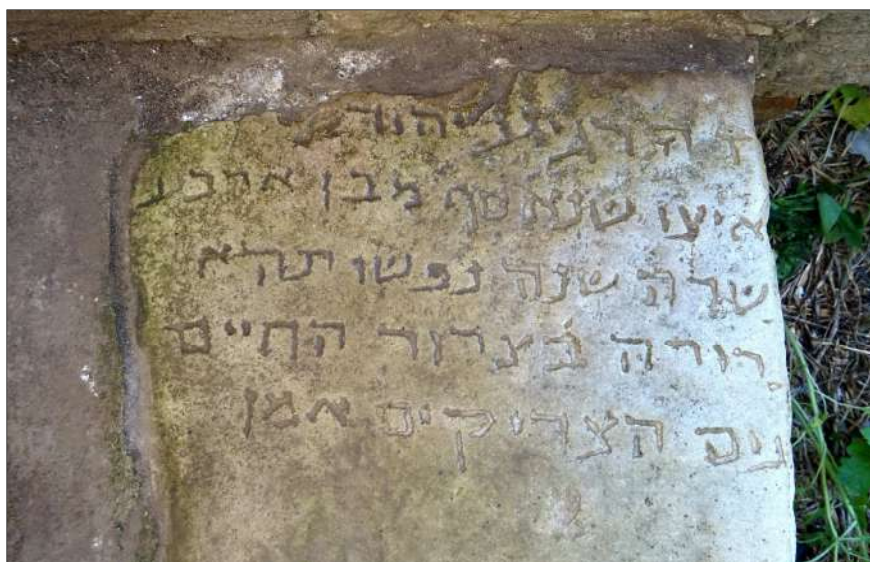 יהוד
שנאסף מבן ארבע
שרה שנה נפשו תהא
רורה בצרור החיים
עם הצדיקים אמן